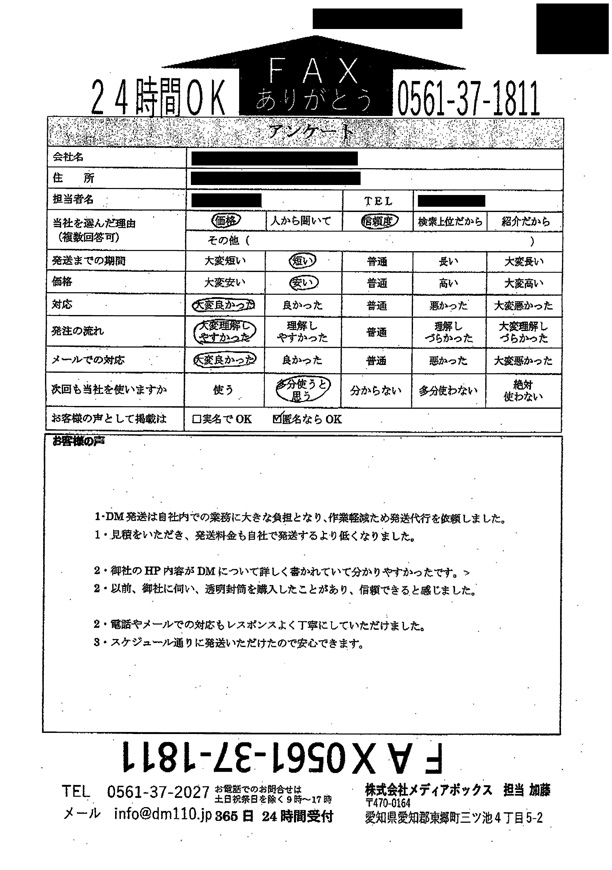 FAX
ありがとう
24時間OK
0561-37-1811
アンケート
会社名
住　所
担当者名 TEL
当社を選んだ理由（複数回答可） 価格 人から聞いて 信頼度 検索上位だから 紹介だから
その他（ ）
発送までの期間 大変短い 短い 普通 長い 大変長い
価格 大変安い 安い 普通 高い 大変高い
対応 大変良かった 良かった 普通 悪かった 大変悪かった
発注の流れ 大変理解しやすかった 理解しやすかった 普通 理解しづらかった 大変理解しづらかった
メールでの対応 大変良かった 良かった 普通 悪かった 大変悪かった
次回も当社を使いますか 使う 多分使うと思う 分からない 多分使わない 絶対使わない
お客様の声として掲載は □実名でOK ☑匿名ならOK
お客様の声
1・DM発送は自社内での業務に大きな負担となり、作業軽減ため発送代行を依頼しました。
1・見積をいただき、発送料金も自社で発送するより低くなりました。
2・御社のHP内容がDMについて詳しく書かれていて分かりやすかったです。>
2・以前、御社に伺い、透明封筒を購入したことがあり、信頼できると感じました。
2・電話やメールでの対応もレスポンスよく丁寧にしていただけました。
3・スケジュール通りに発送いただけたので安心できます。
FAX0561-37-1811
TEL 0561-37-2027 お電話でのお問合せは
土日祝祭日を除く9時～17時
メール info@dm110.jp 365日 24時間受付
株式会社メディアボックス 担当 加藤
〒470-0164
愛知県愛知郡東郷町三ツ池4丁目5-2